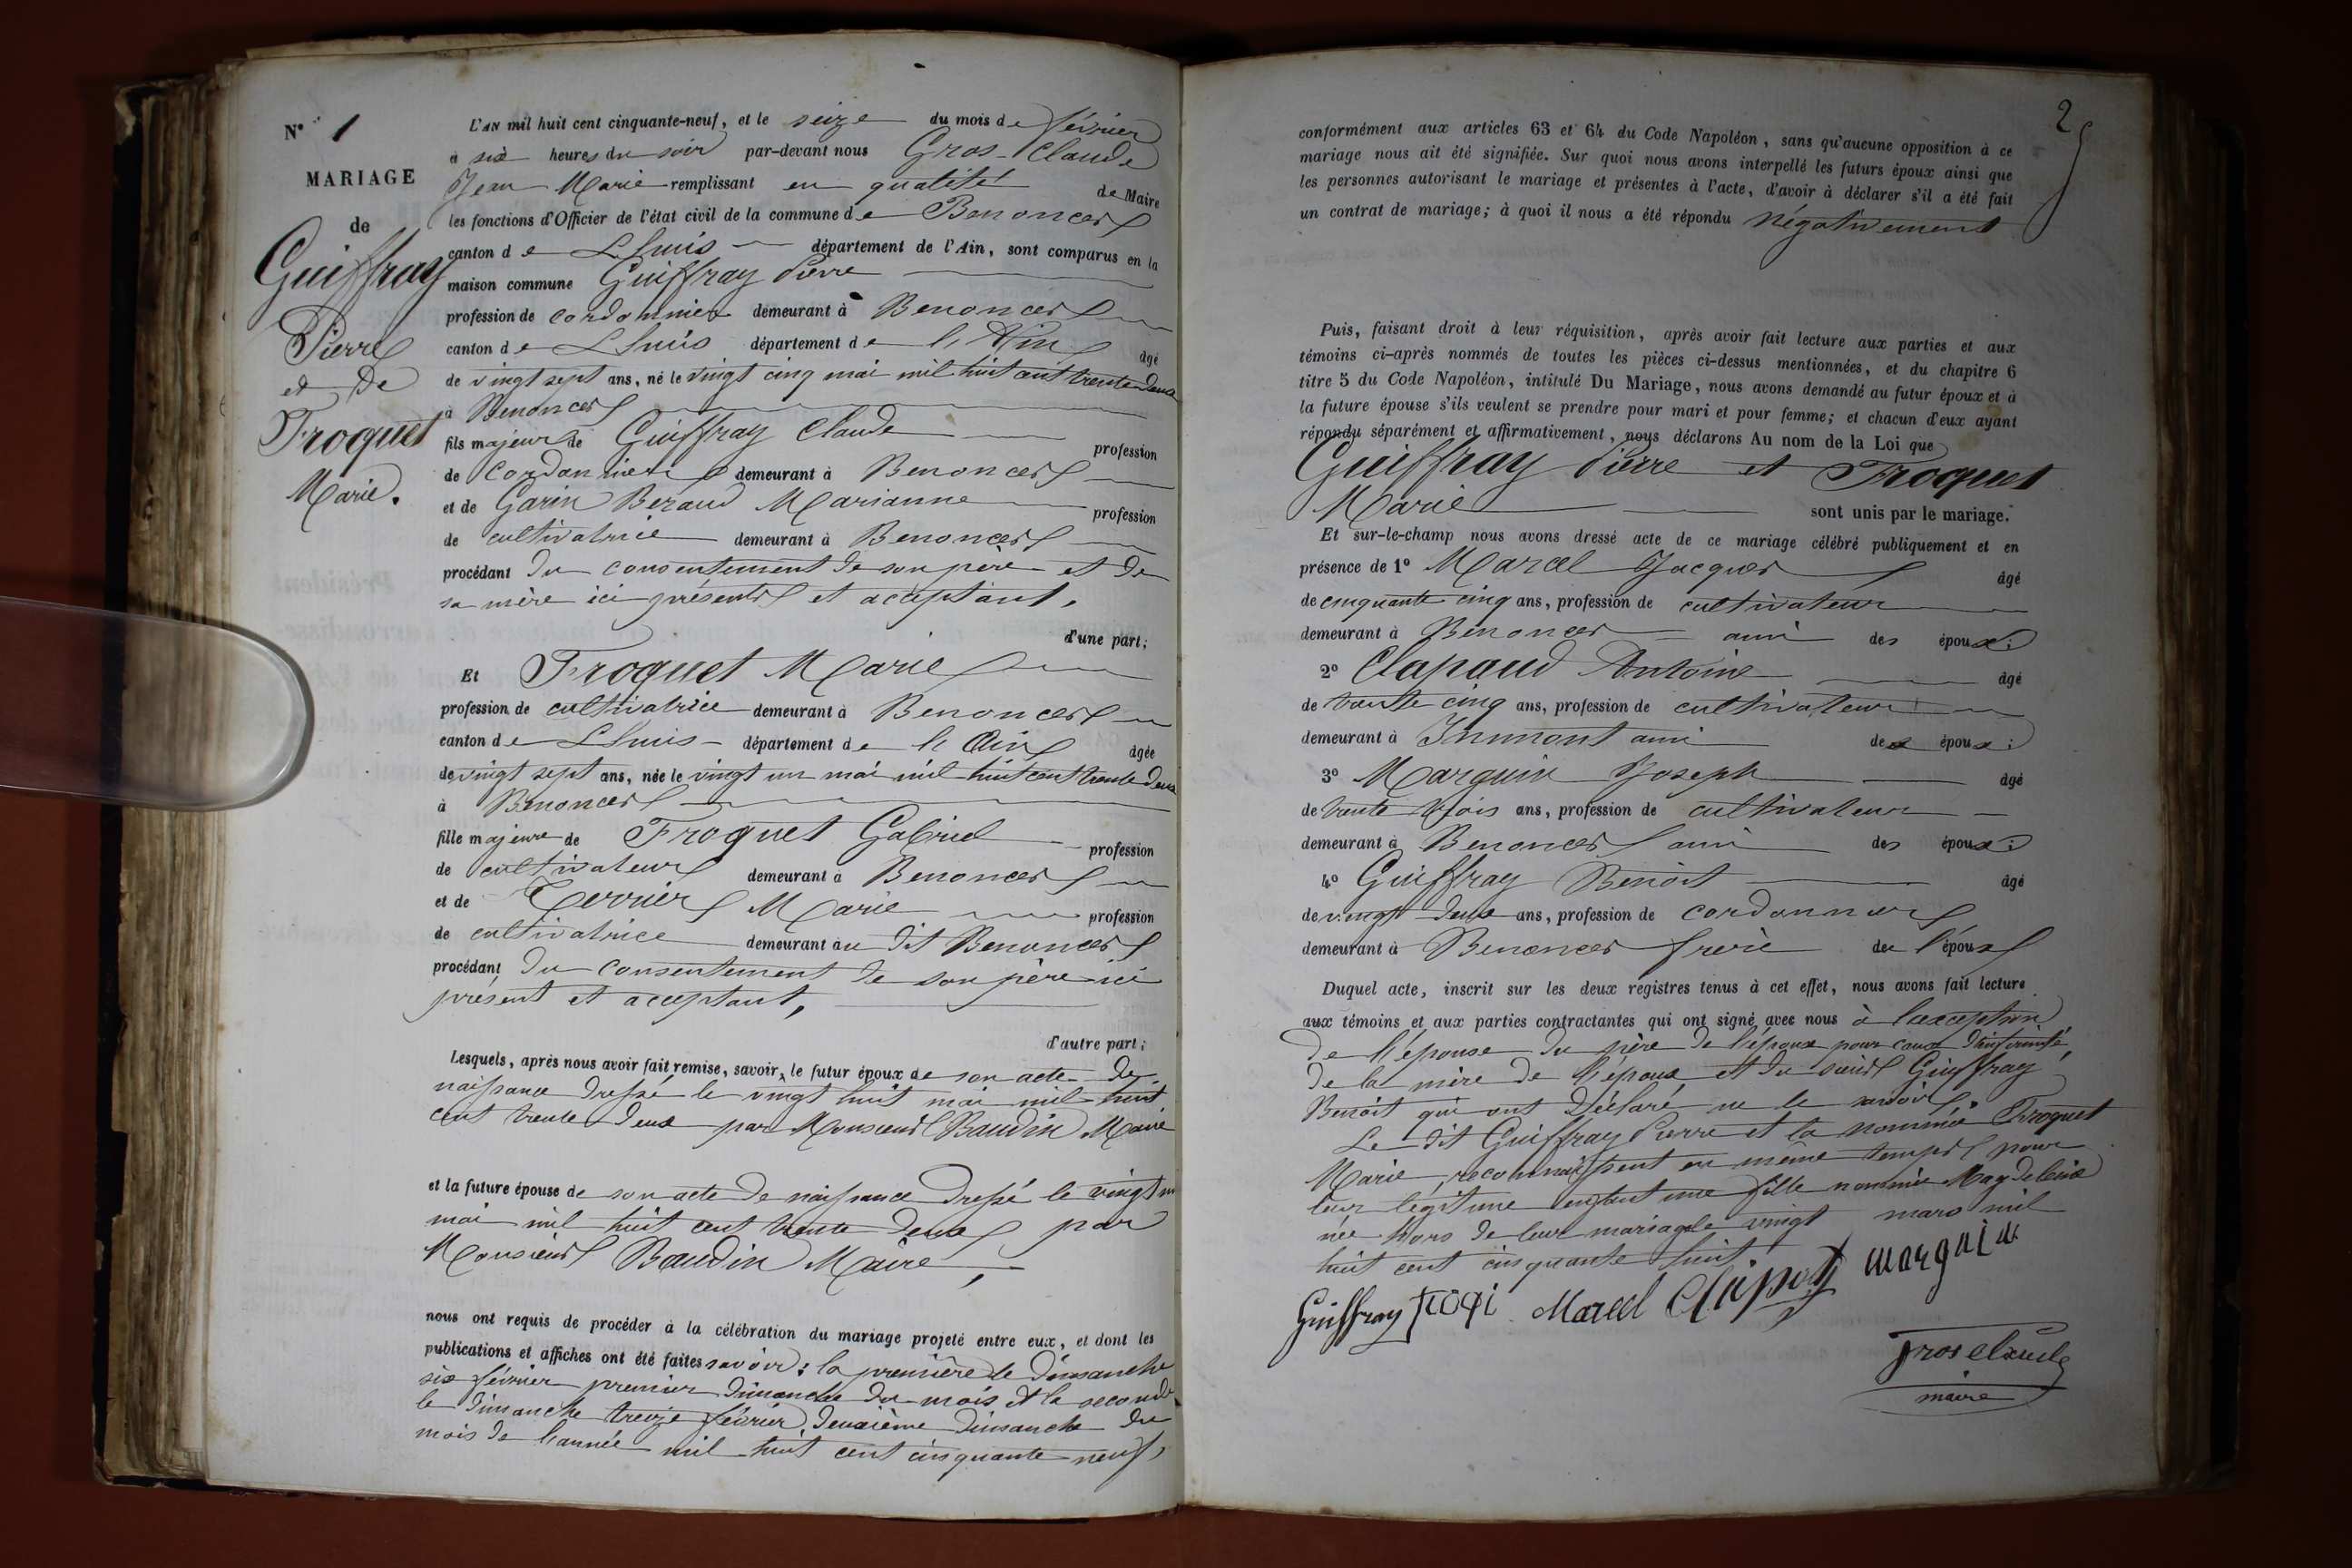 N° 1
MARIAGE
de
Guiffray
Pierre
et de
Froquet
Marie.
L'AN mil huit cent cinquante-neuf, et le seize du mois de février
à six heures du soir par-devant nous Gros-Claude
Jean Marie remplissant en qualité de Maire
les fonctions d'Officier de l'état civil de la commune de Benonces
canton de Lhuis département de l'Ain, sont comparus en la
maison commune Guiffray Pierre
profession de cordonnier demeurant à Benonces
canton de Lhuis département de l'Ain âgé
de vingt sept ans, né le vingt cinq mai mil huit cent trente deux
à Benonces
fils majeur de Guiffray Claude profession
de cordonnier demeurant à Benonces
et de Garin Beraud Marianne profession
de cultivatrice demeurant à Benonces
procédant du consentement de son père et de
sa mère ici présents et acceptant,
d'une part;
Et Froquet Marie
profession de cultivatrice demeurant à Benonces
canton de Lhuis département de l'Ain âgée
de vingt sept ans, née le vingt un mai mil huit cent trente deux
à Benonces
fille majeure de Froquet Gabriel profession
de cultivateur demeurant à Benonces
et de Terrier Marie profession
de cultivatrice demeurant au dit Benonces
procédant du consentement de son père ici
présent et acceptant,
d'autre part;
Lesquels, après nous avoir fait remise, savoir, le futur époux de son acte de
naissance dressé le vingt huit mai mil huit
cent trente deux par Monsieur Baudin Maire
et la future épouse de son acte de naissance dressé le vingt un
mai mil huit cent trente deux par
Monsieur Baudin Maire,
nous ont requis de procéder à la célébration du mariage projeté entre eux, et dont les
publications et affiches ont été faites savoir: la première le dimanche
six février premier dimanche du mois et la seconde
le dimanche treize février, deuxième dimanche du
mois de l'année mil huit cent cinquante neuf,
2
conformément aux articles 63 et 64 du Code Napoléon, sans qu'aucune opposition à ce
mariage nous ait été signifiée. Sur quoi nous avons interpellé les futurs époux ainsi que
les personnes autorisant le mariage et présentes à l'acte, d'avoir à déclarer s'il a été fait
un contrat de mariage; à quoi il nous a été répondu négativement
Puis, faisant droit à leur réquisition, après avoir fait lecture aux parties et aux
témoins ci-après nommés de toutes les pièces ci-dessus mentionnées, et du chapitre 6
titre 5 du Code Napoléon, intitulé Du Mariage, nous avons demandé au futur époux et à
la future épouse s'ils veulent se prendre pour mari et pour femme; et chacun d'eux ayant
répondu séparément et affirmativement, nous déclarons Au nom de la Loi que
Guiffray Pierre et Froquet
Marie sont unis par le mariage.
Et sur-le-champ nous avons dressé acte de ce mariage célébré publiquement et en
présence de 1° Marcel Jacques âgé
de cinquante cinq ans, profession de cultivateur
demeurant à Benonces ami des époux;
2° Clapaud Antoine âgé
de trente cinq ans, profession de cultivateur
demeurant à Inimont ami des époux;
3° Marguin Joseph âgé
de trente trois ans, profession de cultivateur
demeurant à Benonces ami des époux;
4° Guiffray Benoit âgé
de vingt deux ans, profession de cordonnier
demeurant à Benonces frère de l'époux
Duquel acte, inscrit sur les deux registres tenus à cet effet, nous avons fait lecture
aux témoins et aux parties contractantes qui ont signé avec nous à l'exception
de l'épouse du père de l'époux pour cause d'infirmité,
de la mère de l'époux et du sieur Guiffray
Benoit qui ont déclaré ne le savoir.
Le dit Guiffray Pierre et la nommée Froquet
Marie, reconnaissent en même temps pour
leur légitime enfant une fille nommée Magdeleine
née hors de leur mariage le vingt mars mil
huit cent cinquante huit
Guiffray Marcel marguin
gros claude
maire